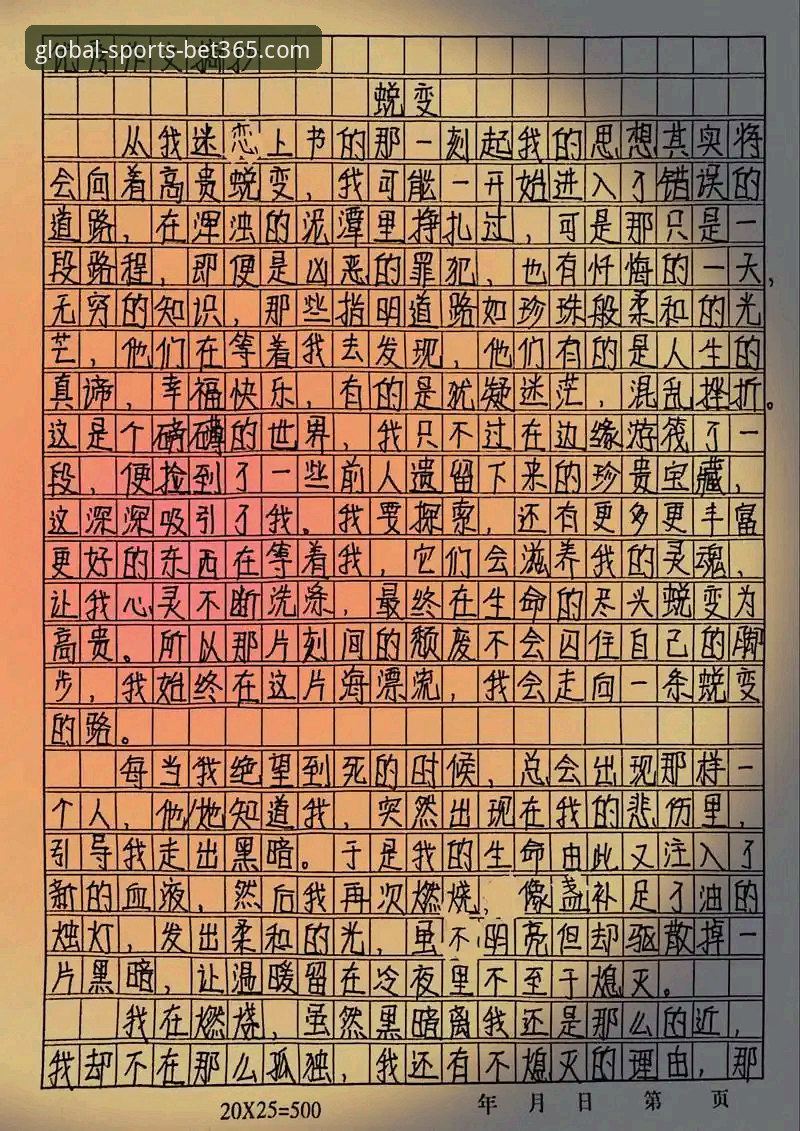 global-sports-bet365.com
蜕变
从我迷恋上书的那一刻起我的思想其实将
会向着高贵蜕变，我可能一开始进入了错误的
道路，在浑浊的泥潭里挣扎过，可是那只是一
段路程，即便是凶恶的罪犯，也有忏悔的一天，
无穷的知识，那些指明道路如珍珠般柔和的光
芒，他们在等着我去发现，他们有的是人生的
真谛，幸福快乐，有的是犹疑迷茫，混乱挫折。
这是个磅礴的世界，我只不过在边缘游筏了一
段，便捡到了一些前人遗留下来的珍贵宝藏，
这深深吸引了我。我要探索，还有更多更丰富
更好的东西在等着我，它们会滋养我的灵魂，
让我心灵不断洗涤，最终在生命的尽头蜕变为
高贵。所以那片刻间的颓废不会囚住自己的脚
步，我始终在这片海漂流，我会走向一条蜕变
的路。
每当我绝望到死的时候，总会出现那样一
个人，他/她知道我，突然出现在我的悲伤里，
引导我走出黑暗。于是我的生命由此又注入了
新的血液，然后我再次燃烧，像盏补足了油的
烛灯，发出柔和的光，虽不明亮但却驱散掉一
片黑暗，让温暖留在冷夜里不至于熄灭。
我在燃烧，虽然黑暗离我还是那么的近，
我却不在那么孤独，我还有不熄灭的理由，那
20X25=500 年 月 日 第 页